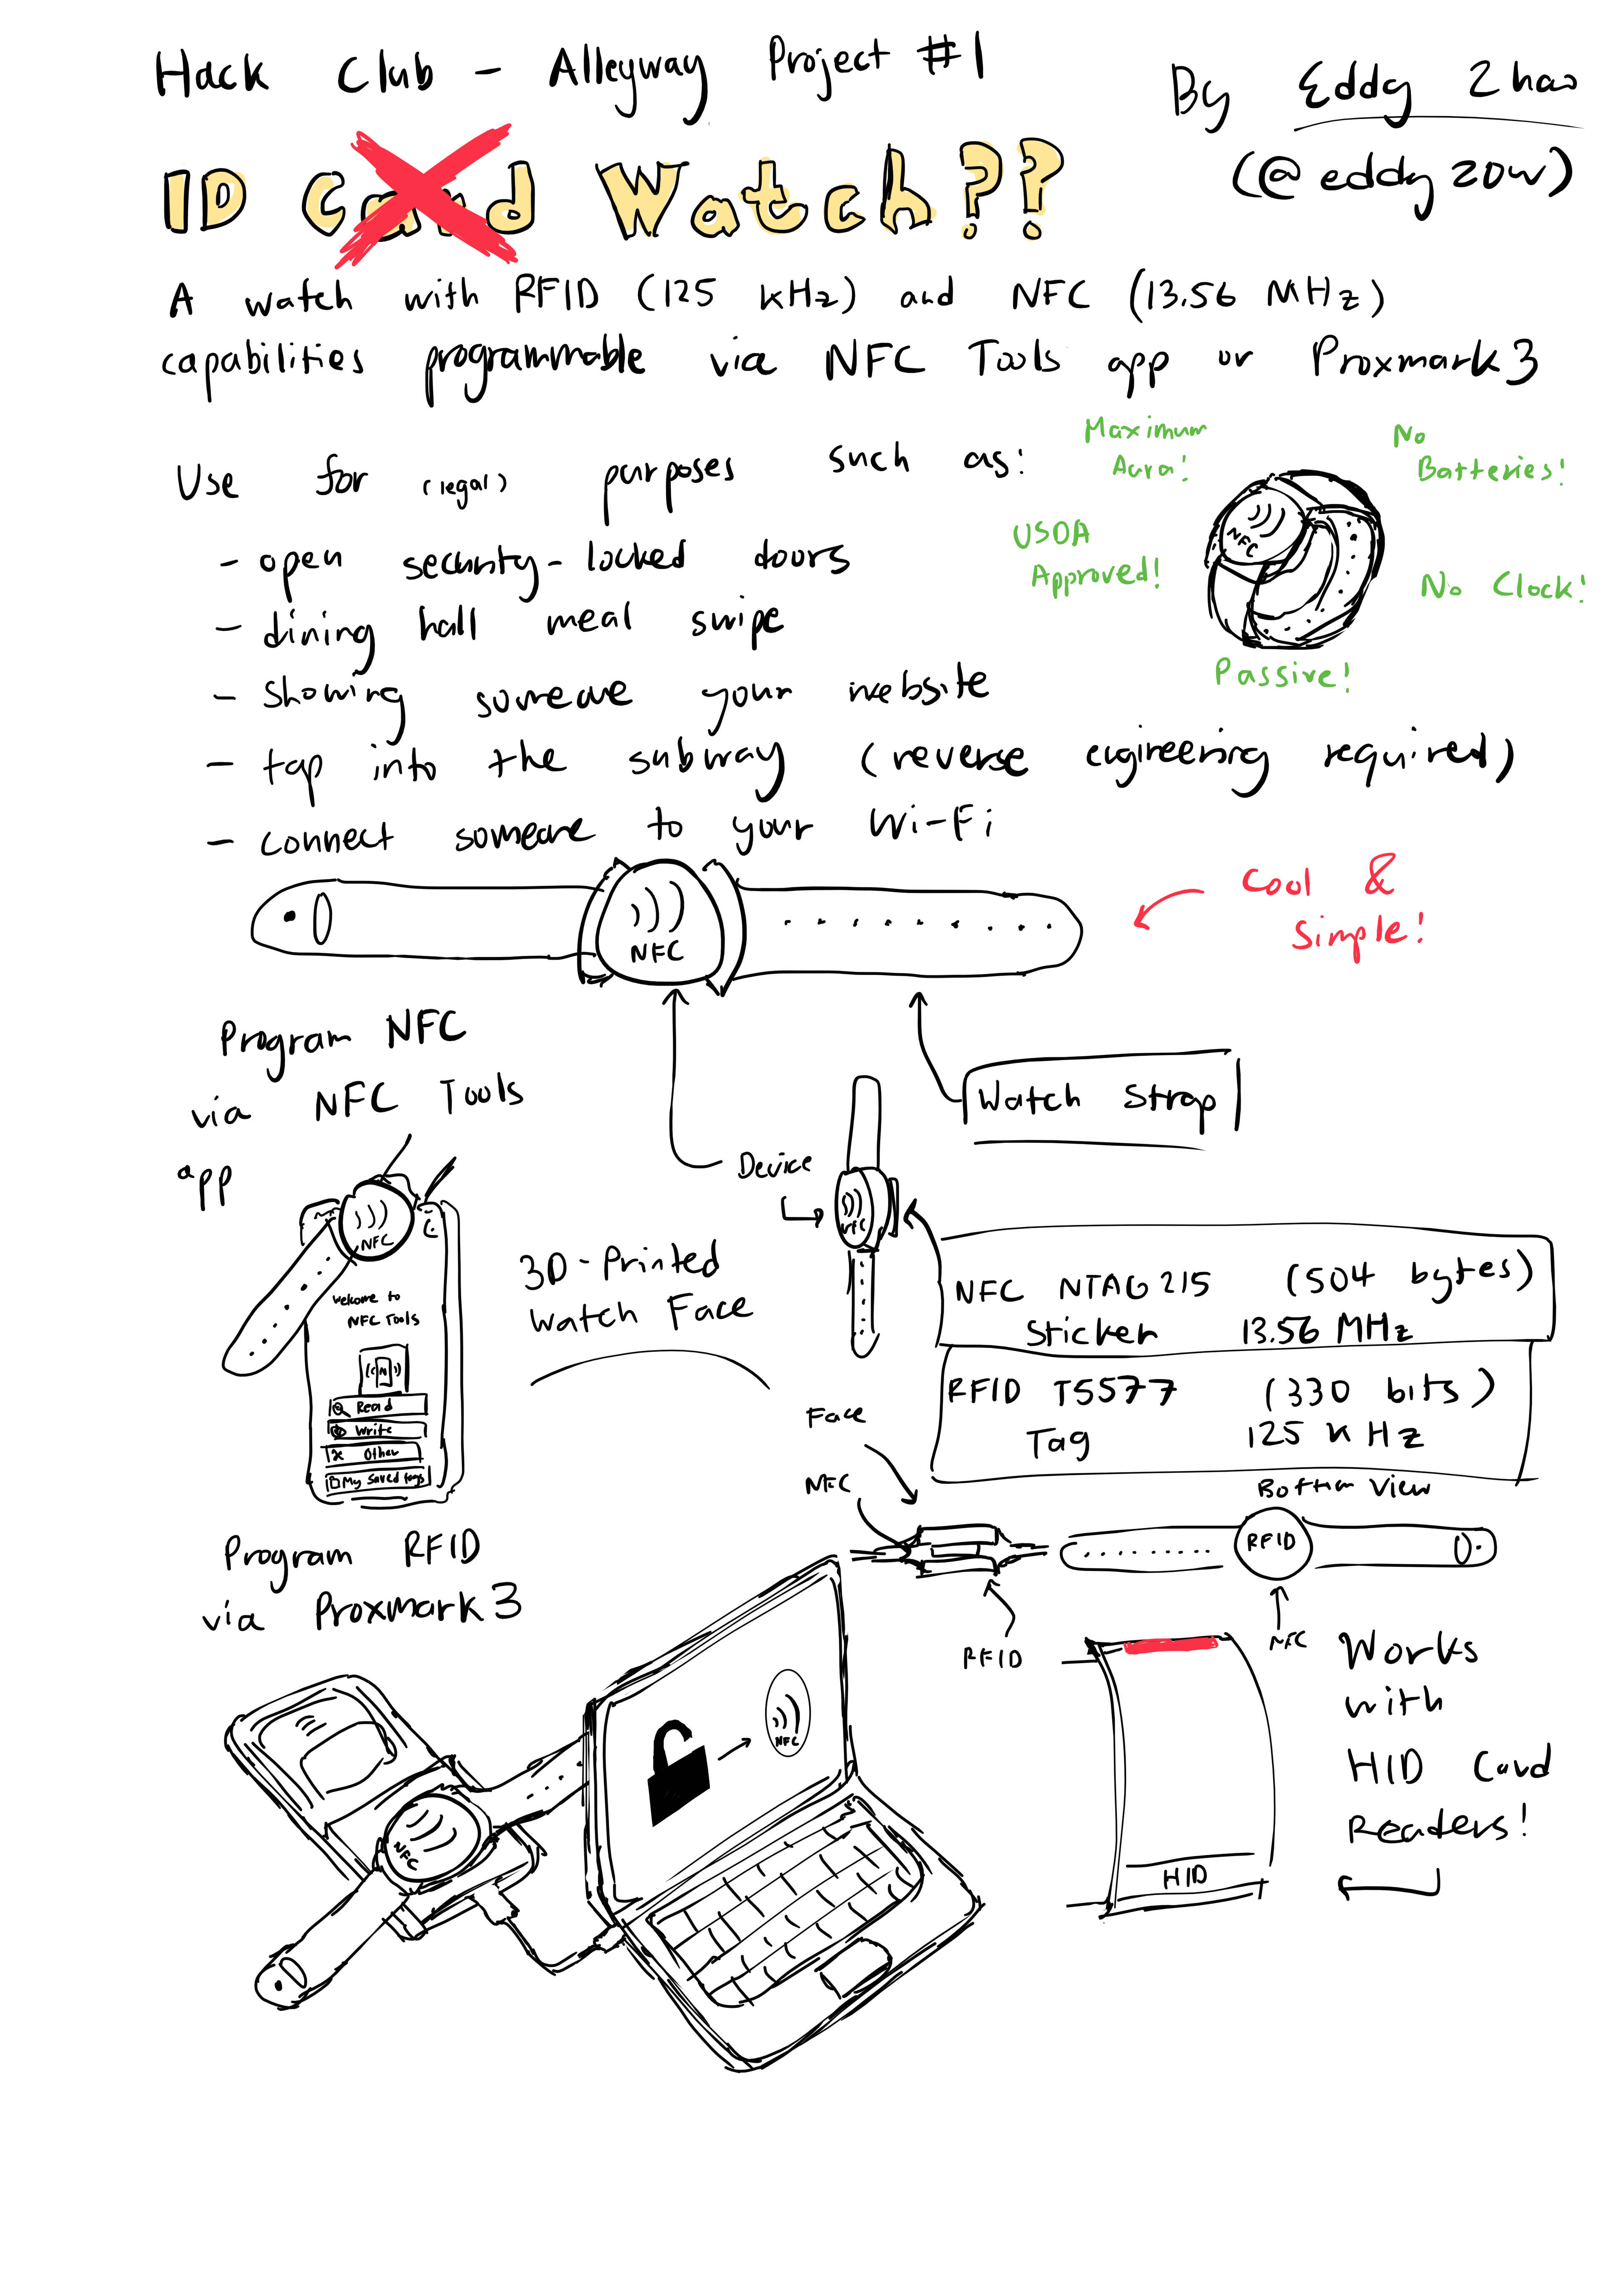 Hack Club - Alleyway Project #1
By Eddy Zhao
(@eddy20w)
ID Card Watch??
A watch with RFID (125 kHz) and NFC (13.56 MHz)
capabilities programmable via NFC Tools app or Proxmark3
Use for (legal) purposes such as:
- open security-locked doors
- dining hall meal swipe
- showing someone your website
- tap into the subway (reverse engineering required)
- connect someone to your Wi-Fi
Maximum
Aura!
No
Batteries!
USDA
Approved!
NFC
No Clock!
Passive!
NFC
Cool &
Simple!
Program NFC
via NFC Tools
app
Watch Strap
Device
NFC
NFC
Welcome to
NFC Tools
Read
Write
Other
My saved tags
3D-Printed
Watch Face
NFC NTAG215 (504 bytes)
Sticker 13.56 MHz
RFID T5577 (330 bits)
Tag 125 kHz
Face
NFC
RFID
Bottom View
RFID
NFC
Program RFID
via Proxmark3
NFC
NFC
HID
Works
with
HID Card
Readers!